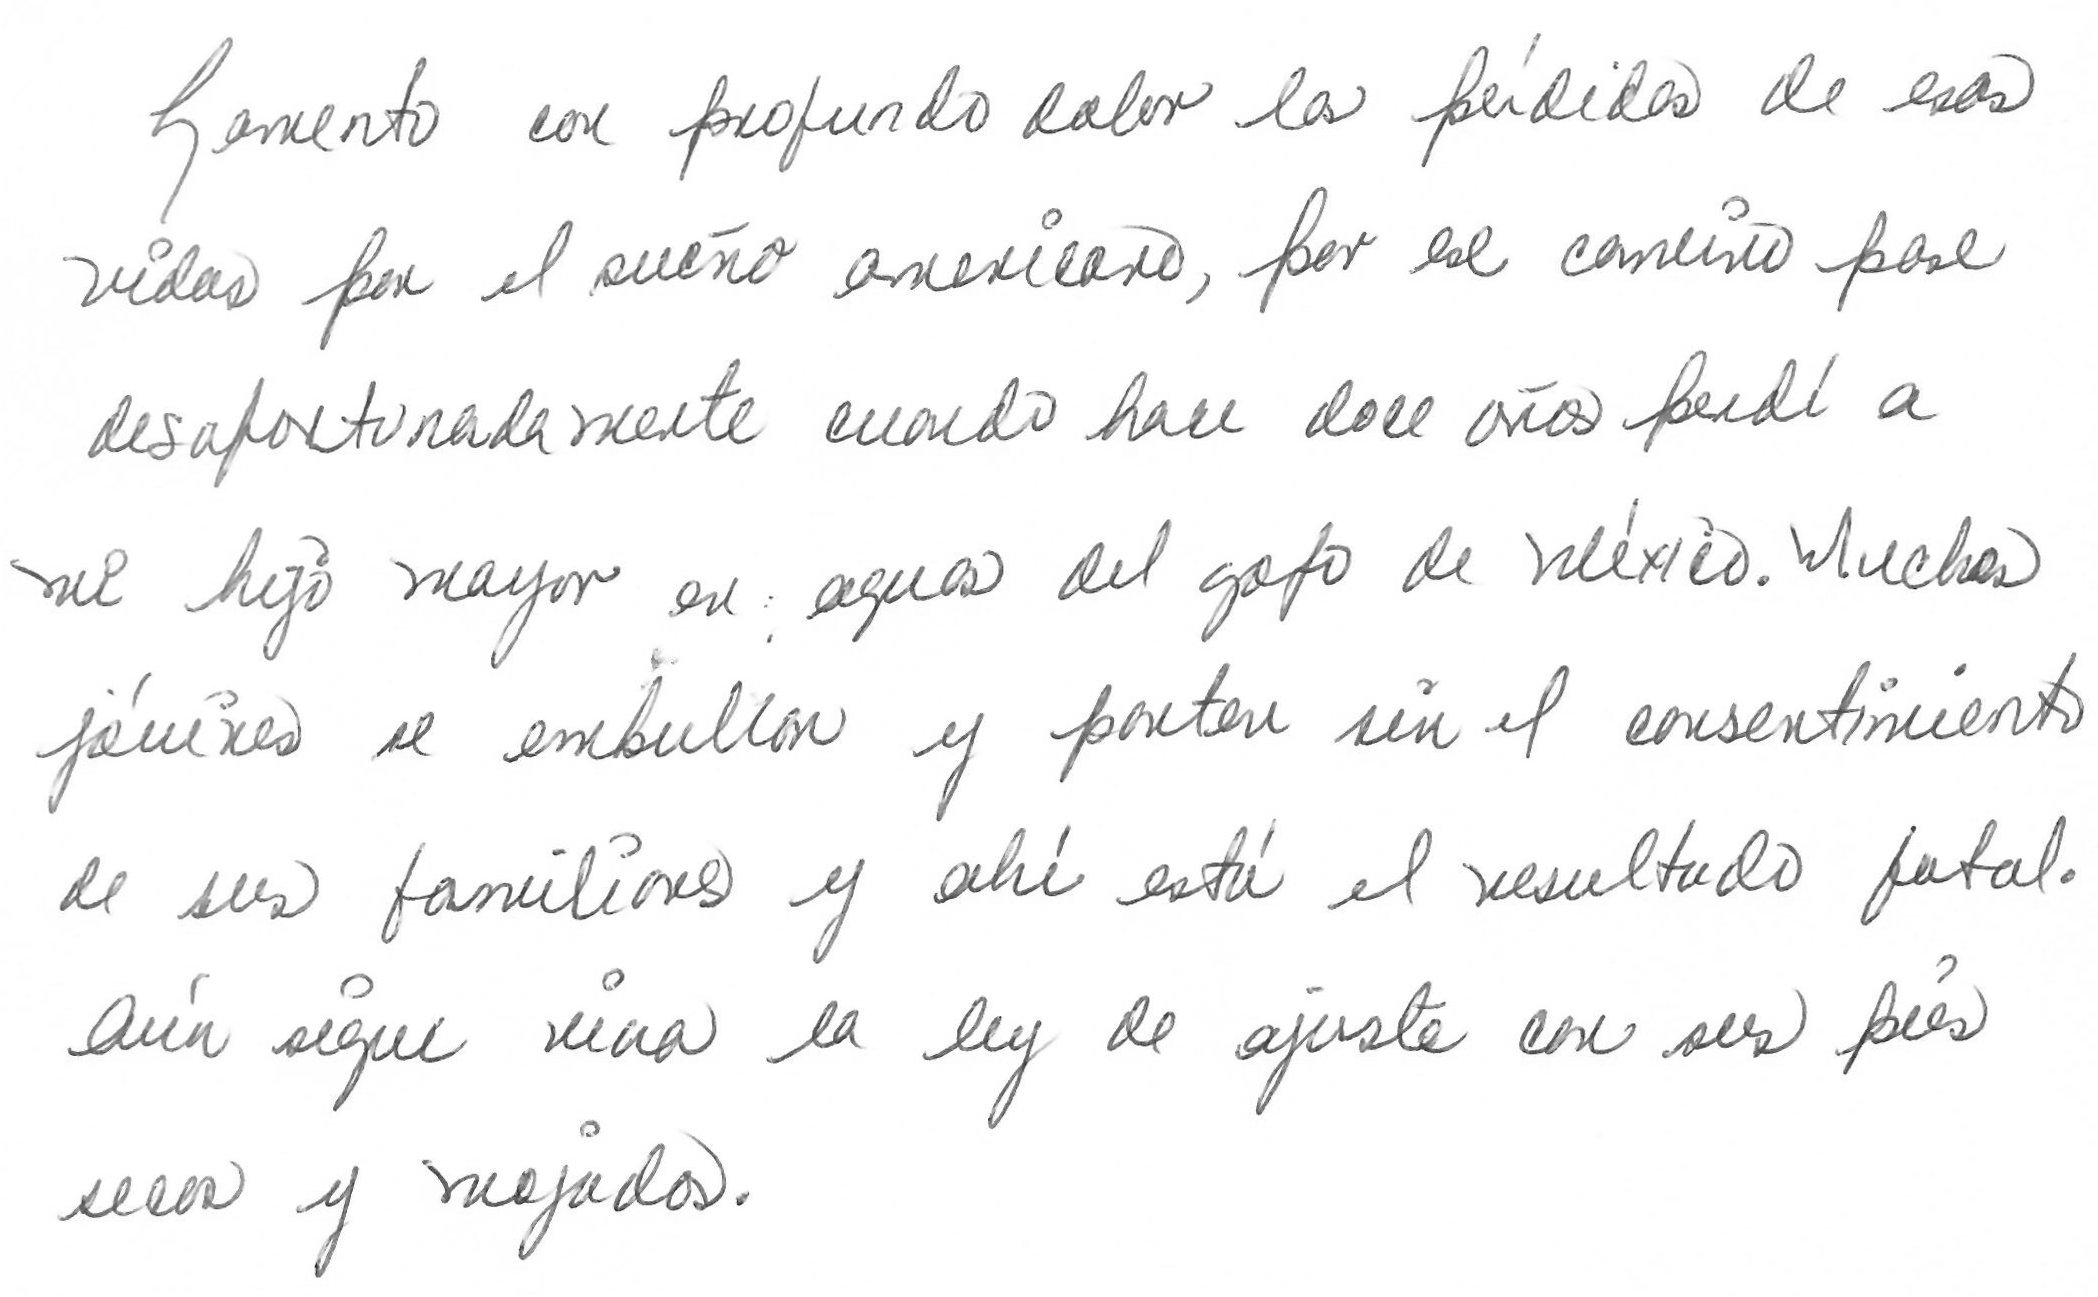 Lamento con profundo dolor las pérdidas de esas
vidas por el sueño americano, por ese camino pase
desafortunadamente cuando hace doce años perdí a
mi hijo mayor en aguas del golfo de México. Muchos
jóvenes se embullan y parten sin el consentimiento
de sus familiares y ahí está el resultado fatal.
Aún sigue viva la ley de ajuste con sus piés
secos y mojados.